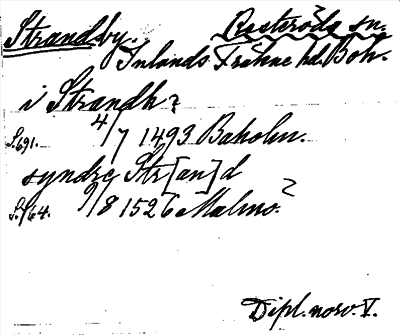 Strandby. Resteröds sn.
Inlands Fräkne hd. Boh.
i Strandh?
S. 691. 4/7 1493 Baholm.
syndre Str[an]d
S. 764. 9/8 1526 Malmö?
Dipl. norv. V.